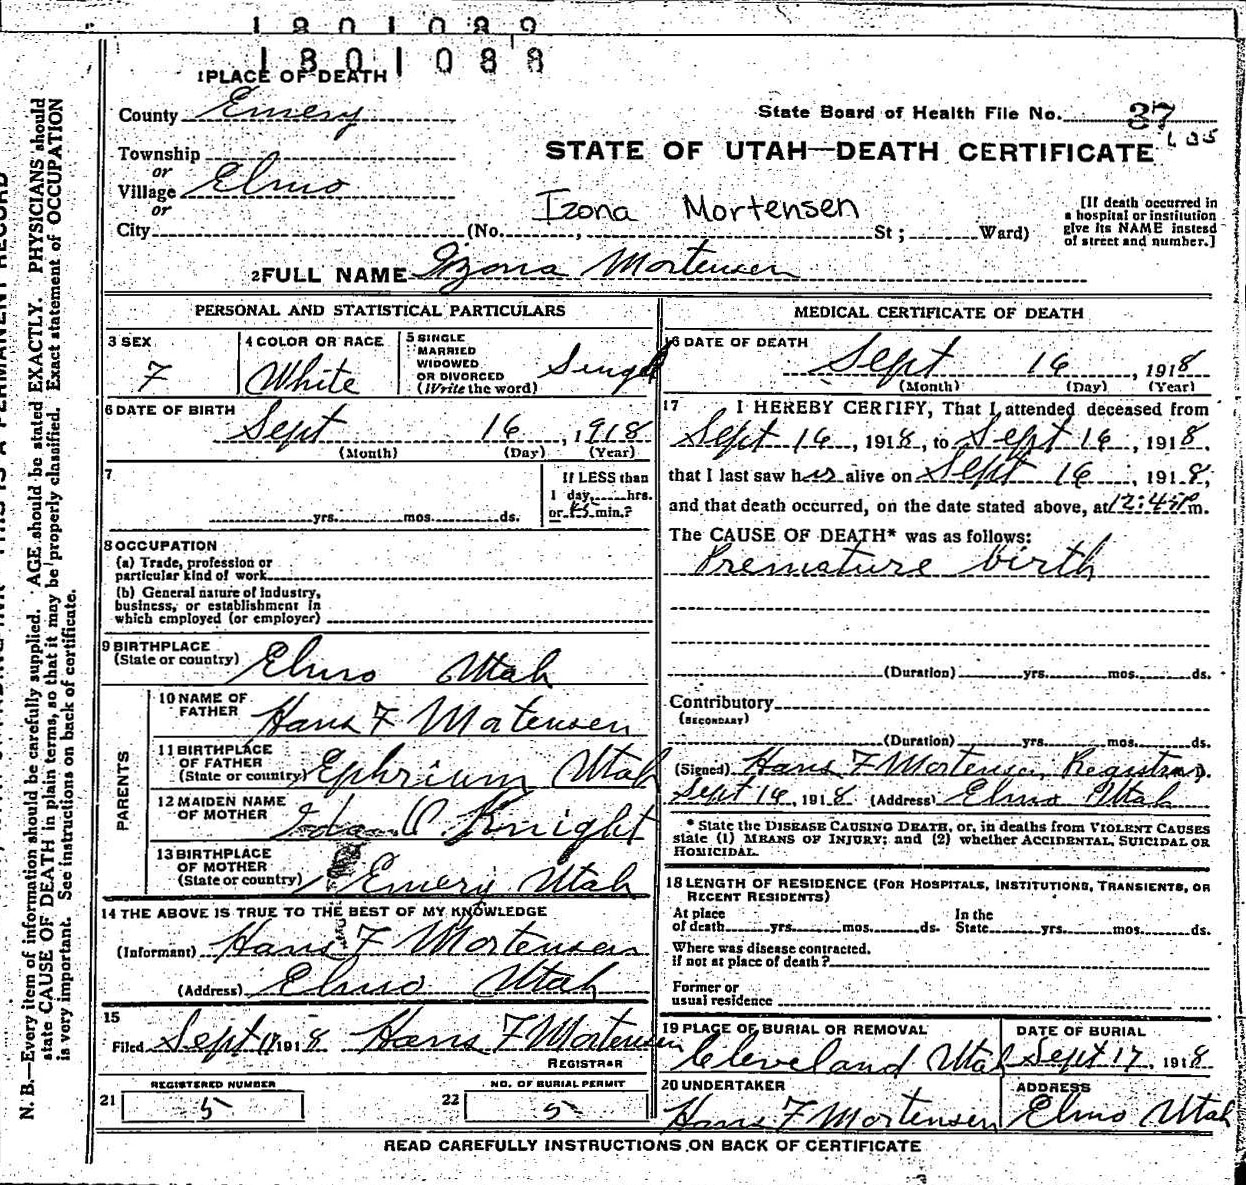 1801089
1801088
1 PLACE OF DEATH
County Emery
State Board of Health File No. 37
Township
or
Village Elmo
or
City (No. , St; Ward)
STATE OF UTAH—DEATH CERTIFICATE
Izona Mortensen
[If death occurred in
a hospital or institution
give its NAME instead
of street and number.]
2 FULL NAME Izona Mortensen
PERSONAL AND STATISTICAL PARTICULARS
3 SEX
F
4 COLOR OR RACE
White
5 SINGLE
MARRIED
WIDOWED
OR DIVORCED
(Write the word) Single
6 DATE OF BIRTH
Sept 16, 1918
(Month) (Day) (Year)
7
yrs. mos. ds.
If LESS than
1 day, hrs.
or 45 min.?
8 OCCUPATION
(a) Trade, profession or
particular kind of work
(b) General nature of Industry,
business, or establishment in
which employed (or employer)
9 BIRTHPLACE
(State or country) Elmo Utah
PARENTS
10 NAME OF
FATHER Hans F Mortensen
11 BIRTHPLACE
OF FATHER
(State or country) Ephrium Utah
12 MAIDEN NAME
OF MOTHER Knight
13 BIRTHPLACE
OF MOTHER
(State or country) Emery Utah
14 THE ABOVE IS TRUE TO THE BEST OF MY KNOWLEDGE
(Informant) Hans F Mortensen
(Address) Elmo Utah
15
Filed Sept 17 1918 Hans F Mortensen
REGISTRAR
REGISTERED NUMBER
21 5
NO. OF BURIAL PERMIT
22 5
MEDICAL CERTIFICATE OF DEATH
16 DATE OF DEATH
Sept 16, 1918
(Month) (Day) (Year)
17 I HEREBY CERTIFY, That I attended deceased from
Sept 16, 1918, to Sept 16, 1918,
that I last saw her alive on Sept 16, 1918,
and that death occurred, on the date stated above, at 12:45P m.
The CAUSE OF DEATH* was as follows:
Premature birth
(Duration) yrs. mos. ds.
Contributory
(SECONDARY)
(Duration) yrs. mos. ds.
(Signed) Hans F Mortensen, Registrar
Sept 16, 1918 (Address) Elmo Utah
* State the DISEASE CAUSING DEATH, or, in deaths from VIOLENT CAUSES
state (1) MEANS OF INJURY; and (2) whether ACCIDENTAL, SUICIDAL OR
HOMICIDAL.
18 LENGTH OF RESIDENCE (FOR HOSPITALS, INSTITUTIONS, TRANSIENTS, OR
RECENT RESIDENTS)
At place
of death yrs. mos. ds.
In the
State yrs. mos. ds.
Where was disease contracted.
if not at place of death?
Former or
usual residence
19 PLACE OF BURIAL OR REMOVAL
Cleveland Utah
DATE OF BURIAL
Sept 17, 1918
20 UNDERTAKER
Hans F Mortensen
ADDRESS
Elmo Utah
READ CAREFULLY INSTRUCTIONS ON BACK OF CERTIFICATE
N. B.—Every item of information should be carefully supplied. AGE should be stated EXACTLY. PHYSICIANS should
state CAUSE OF DEATH in plain terms, so that it may be properly classified. Exact statement of OCCUPATION
is very important. See instructions on back of certificate.